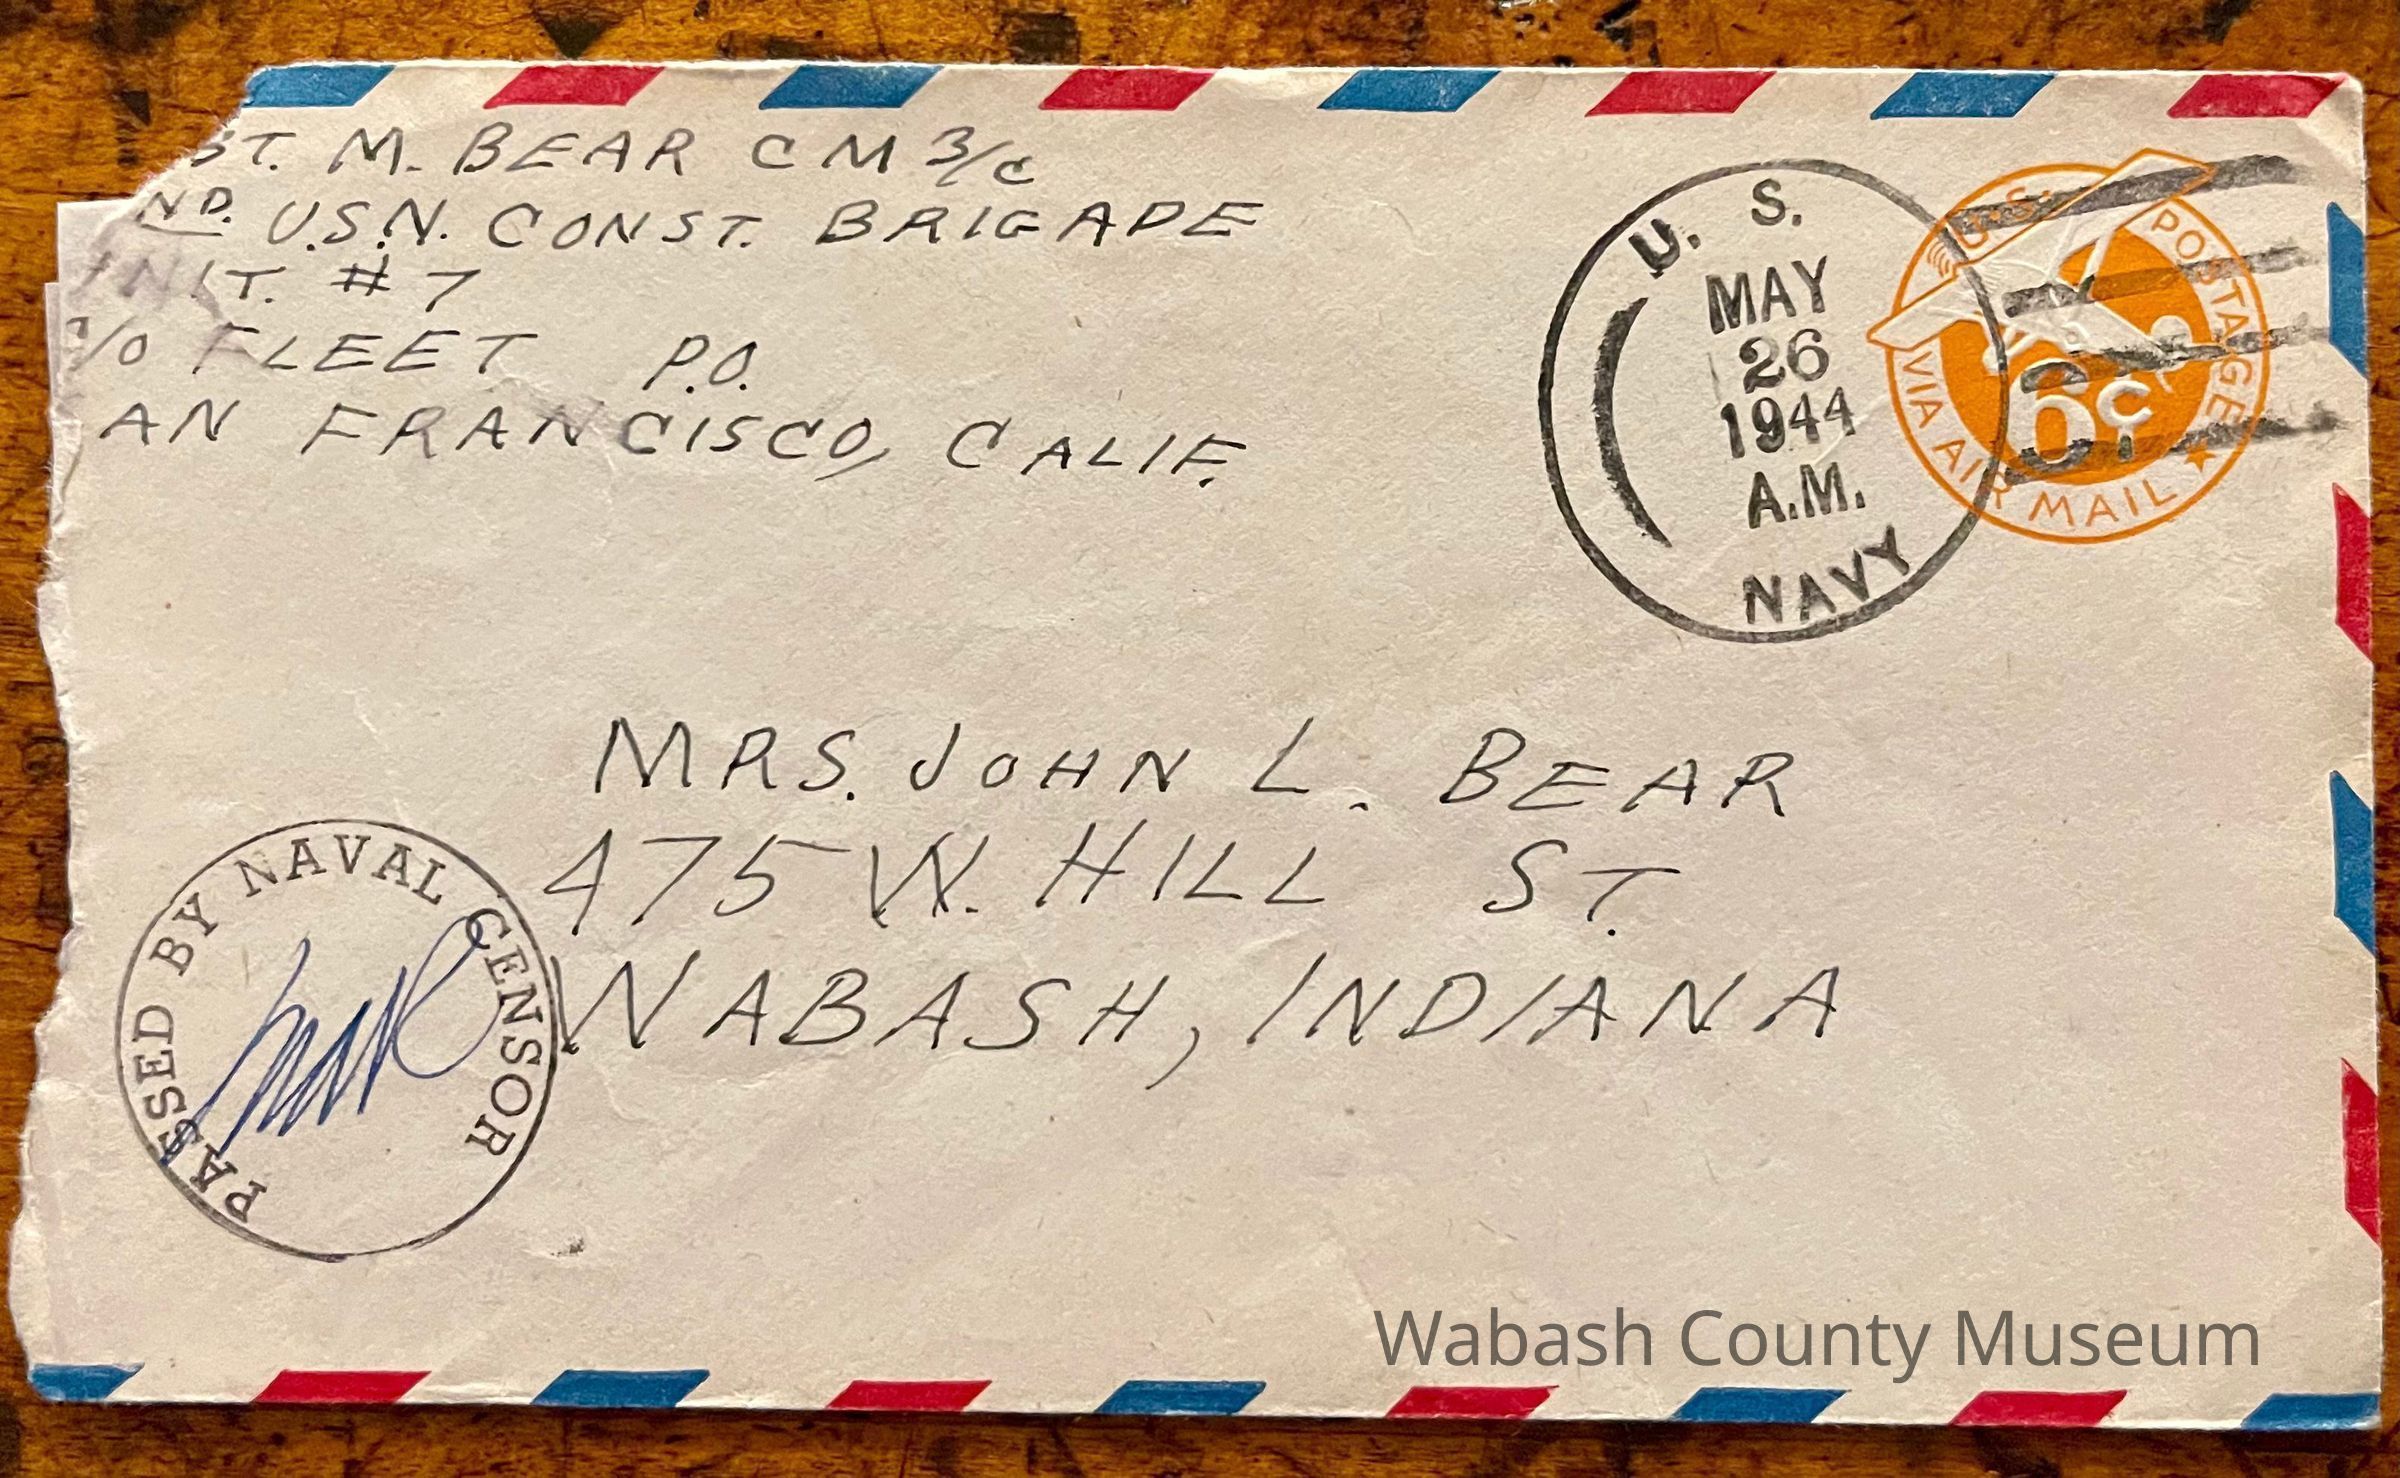 ST. M. BEAR CM 3/C
ND. U.S.N. CONST. BRIGADE
UNIT. #7
C/O FLEET P.O.
AN FRANCISCO, CALIF.
U. S.
MAY
26
1944
A.M.
NAVY
U.S. POSTAGE
6¢
VIA AIR MAIL
MRS. JOHN L. BEAR
475 W. HILL ST.
WABASH, INDIANA
PASSED BY NAVAL CENSOR
Wabash County Museum